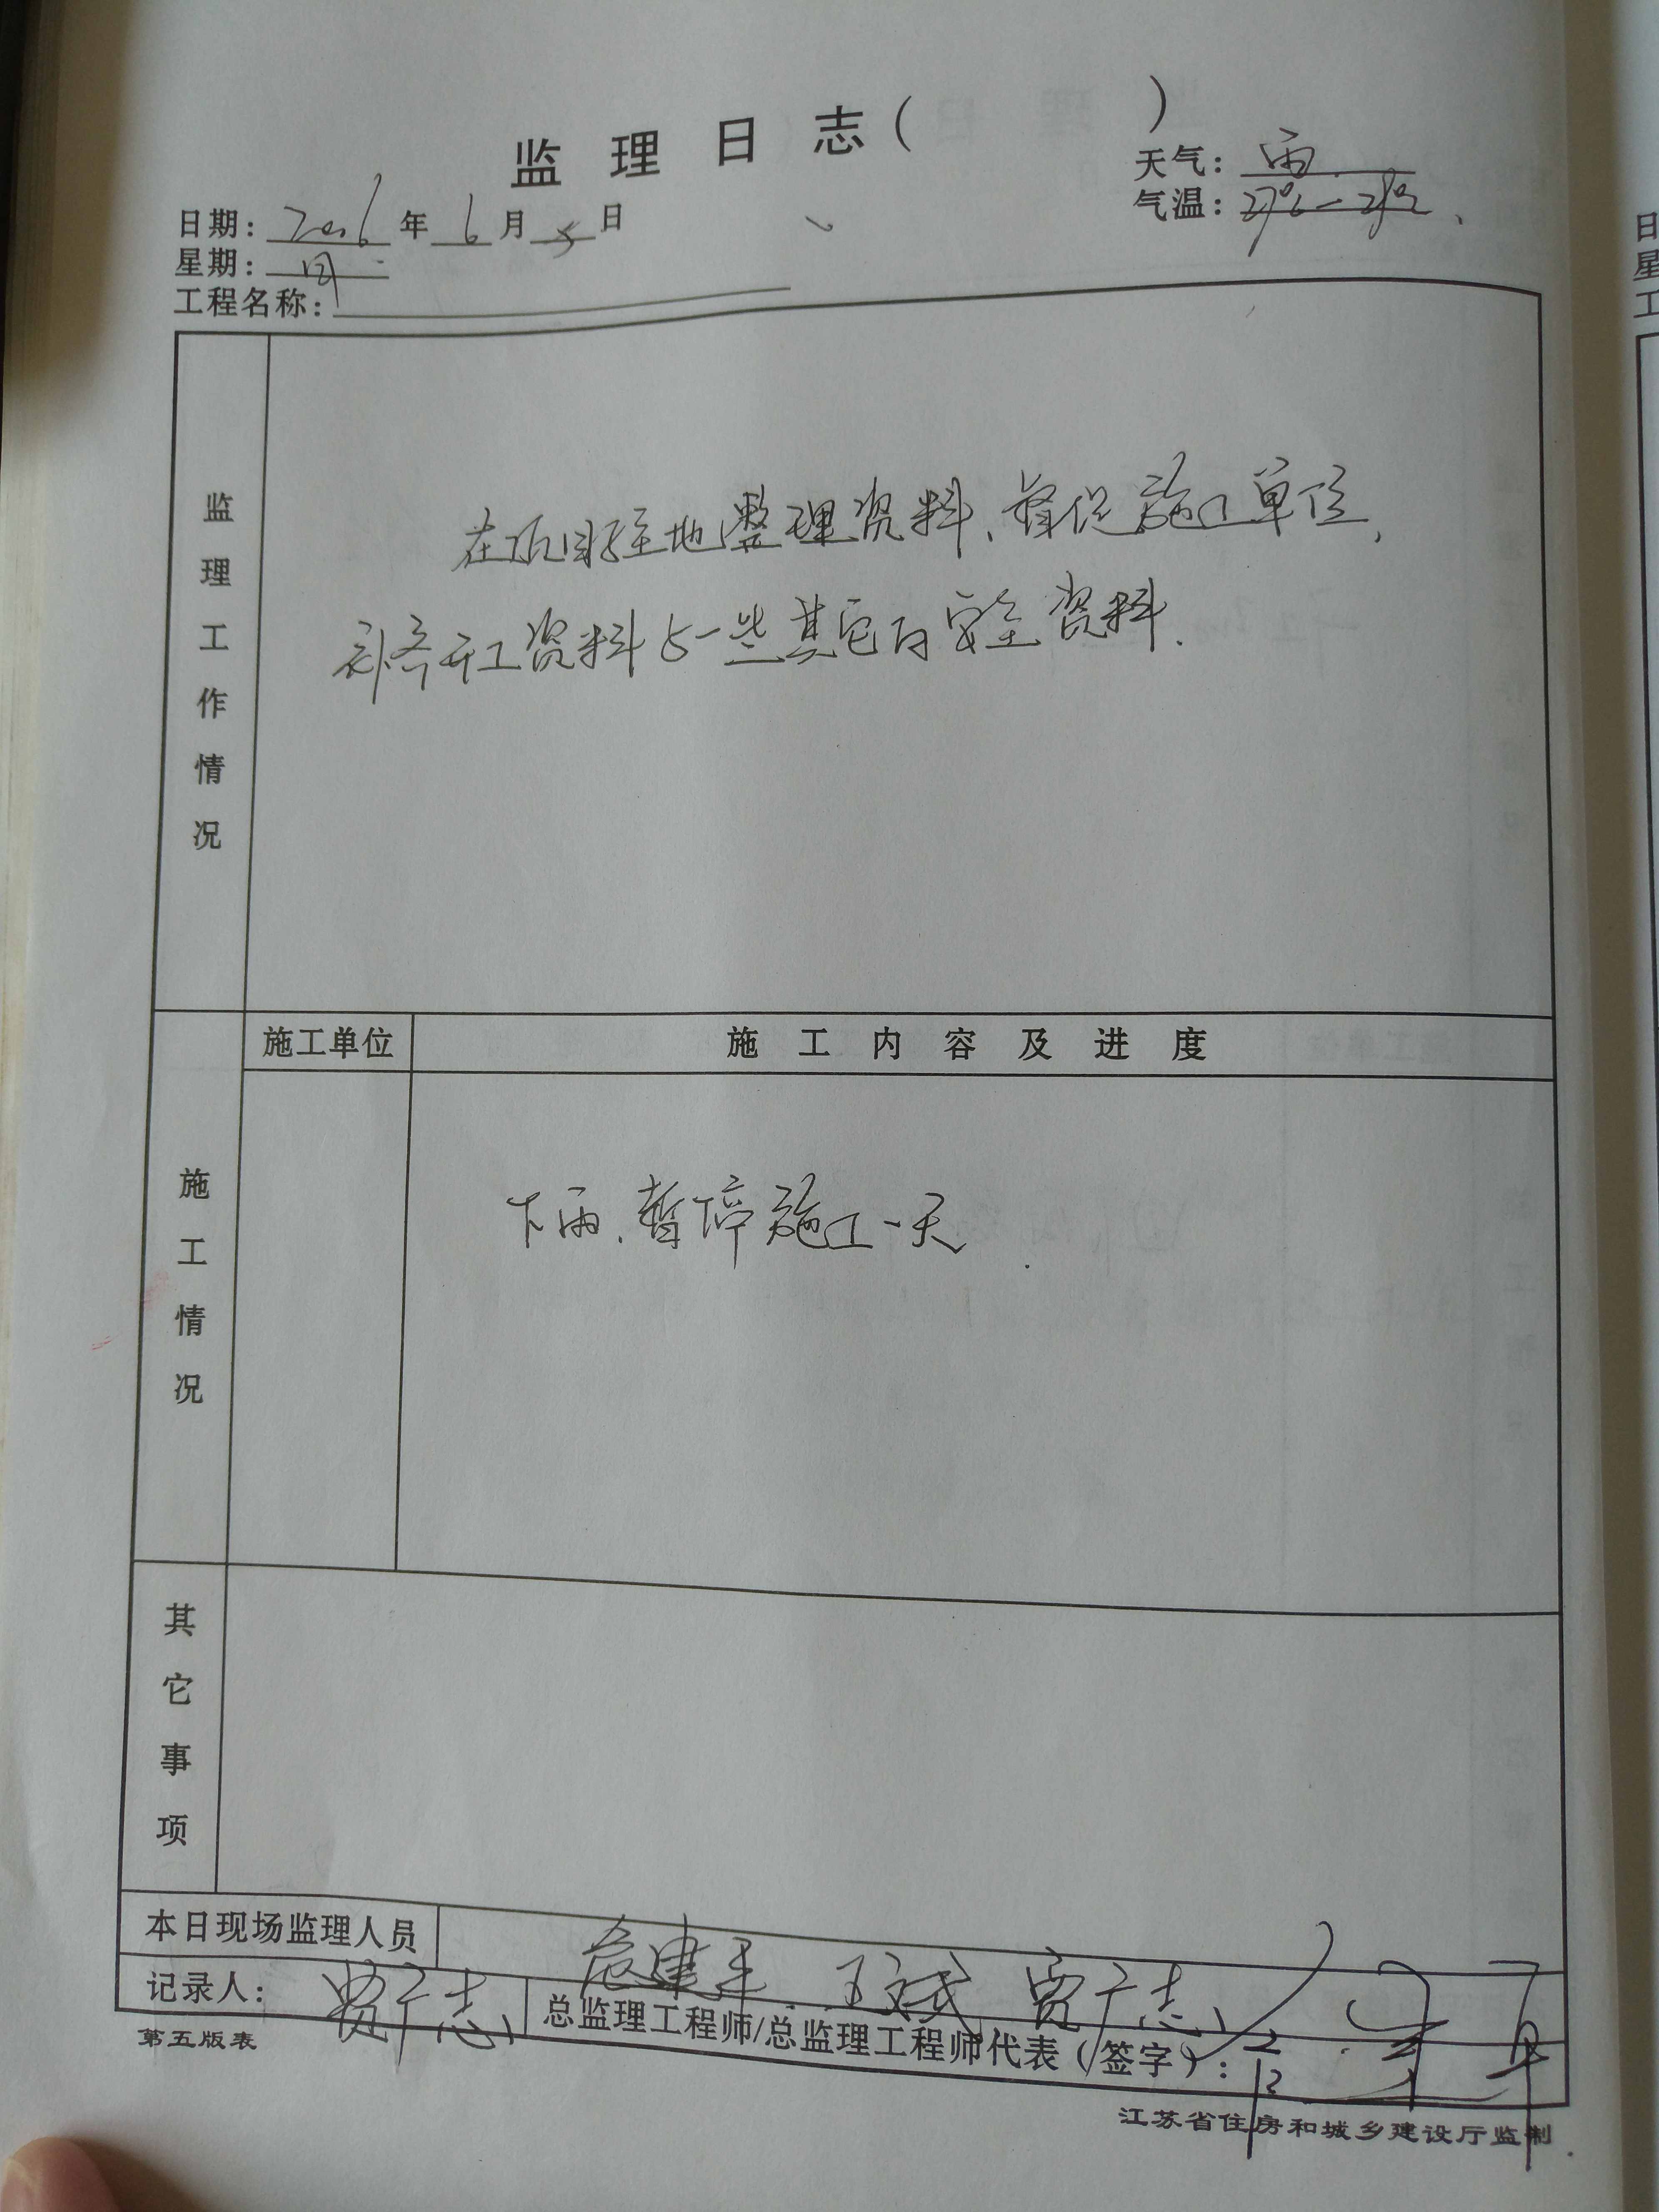 监理日志（ ）
天气：雨
气温：
日期：2016年6月5日
星期：日
工程名称：
监理工作情况
在项目驻地整理资料、督促施工单位，
补齐开工资料与一些其它的安全资料.
施工单位
施工内容及进度
施工情况
下雨.暂停施工一天.
其它事项
本日现场监理人员
王文武 贾广志
记录人：贾广志
总监理工程师/总监理工程师代表（签字）：
第五版表
江苏省住房和城乡建设厅监制
日
星
工